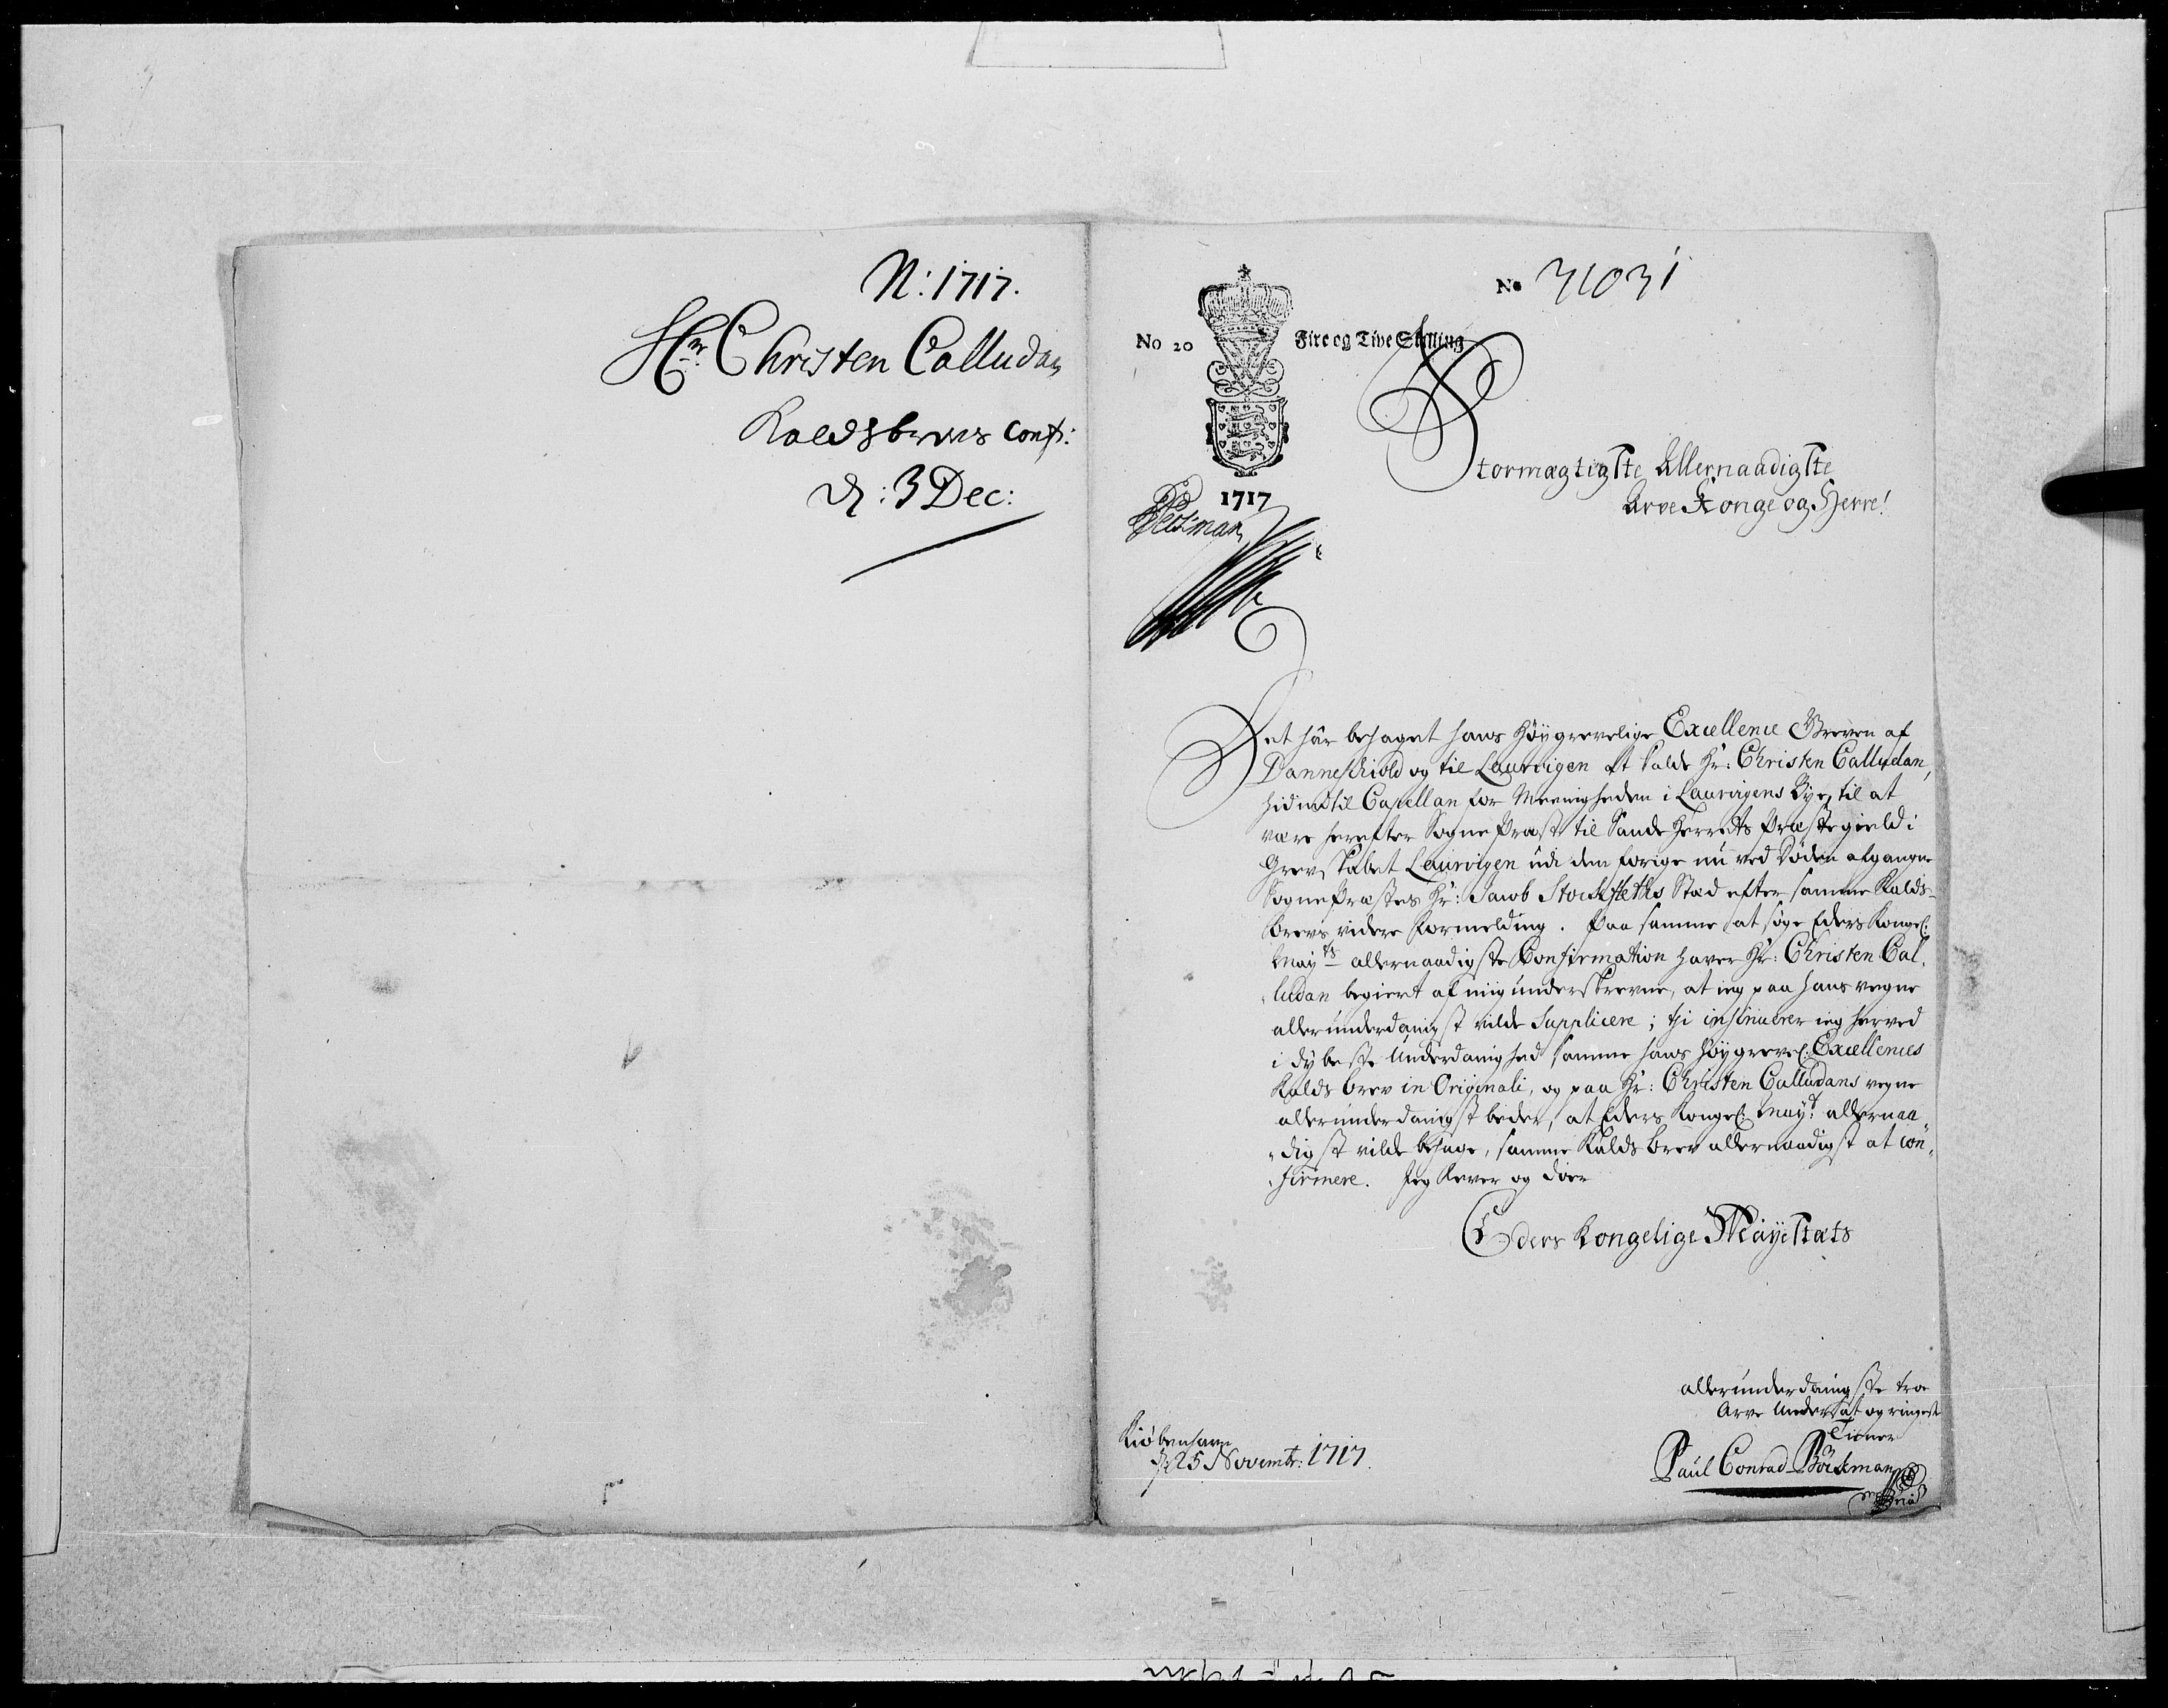 N: 1717.
Hr. Christen Calludan
Kaldsbrevs Conf:
d: 3 Dec:
No 20
Fire og Tive Skilling
No 31031
1717
Stormægtigste Allernaadigste
Arve Konge og Herre!
Det har behaget hans Høygrevelige Excellence Greven af
Danneschiold og til Laurvigen at kalde Hr: Christen Calludan,
hidindtil Capellan for Meenigheden i Laurvigens Bye, til at
være herefter Sogne Præst til Sande Herreds Præstegield i
Grevskabet Laurvigen udi den forige nu ved Døden afgangne
Sogne Præstes Hr: Jacob Stockfleths Sted efter samme Kalds-
brevs videre Formelding. Paa samme at søge Eders Kongel:
Mayts allernaadigste Confirmation haver Hr: Christen Cal-
ludan begiert af mig underskrevne, at ieg paa hans vegne
allerunderdanigst vilde Supplicere; thi insinuerer ieg herved
i dybeste Underdanighed samme hans Høygrevel: Excellences
Kalds brev in Originali, og paa Hr: Christen Calludans vegne
allerunderdanigst beder, at Eders Kongel: Mayt: allernaa-
digst vilde behage, samme Kalds brev allernaadigst at con-
firmere. Jeg lever og døer
Eders Kongelige Mayestæts
allerunderdanigste troe
Arve Undersat og ringeste
Tiener
Paul Conrad Böckman
Kiøbenhavn
d: 25 Novembr: 1717.